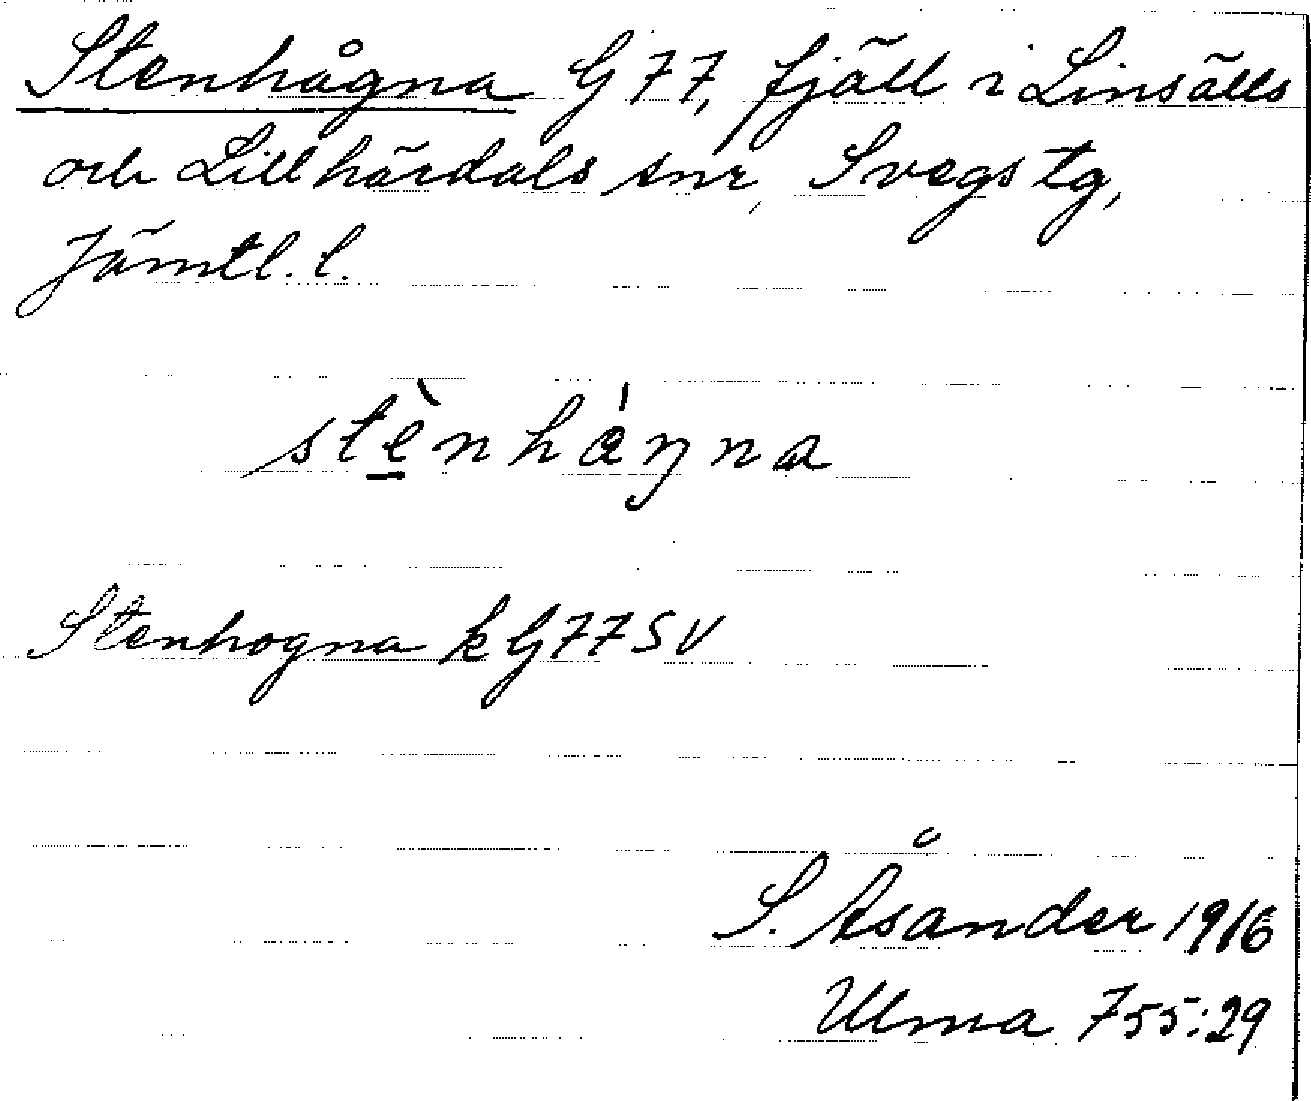 Stenhågna G77, fjäll i Linsälls
och Lillhärdals snr, Svegs tg,
Jämtl. l.
stèn háŋna
Stenhogna k G77SV
S. Åsander 1916
Ulma 755:29